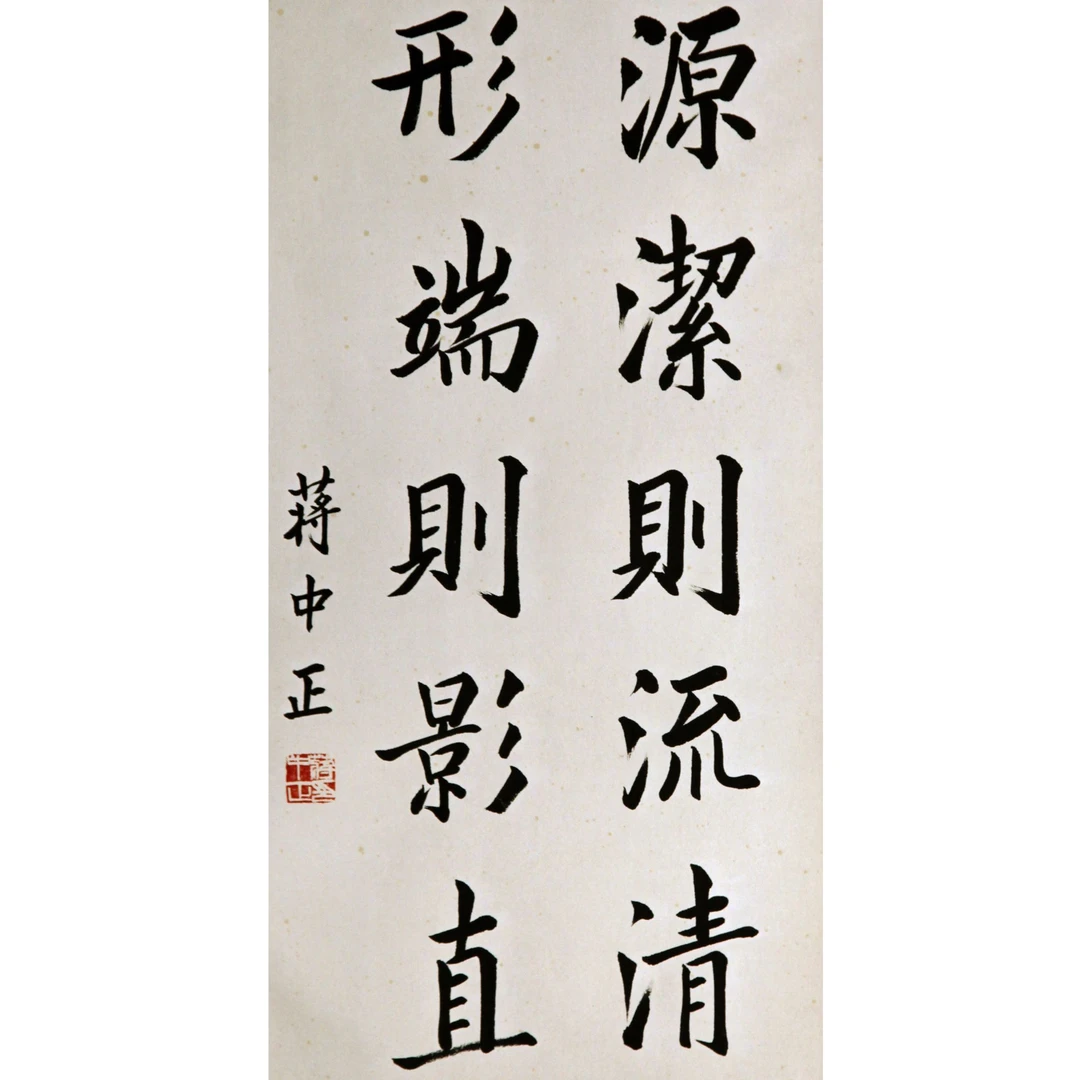 源潔則流清
形端則影直
蒋中正